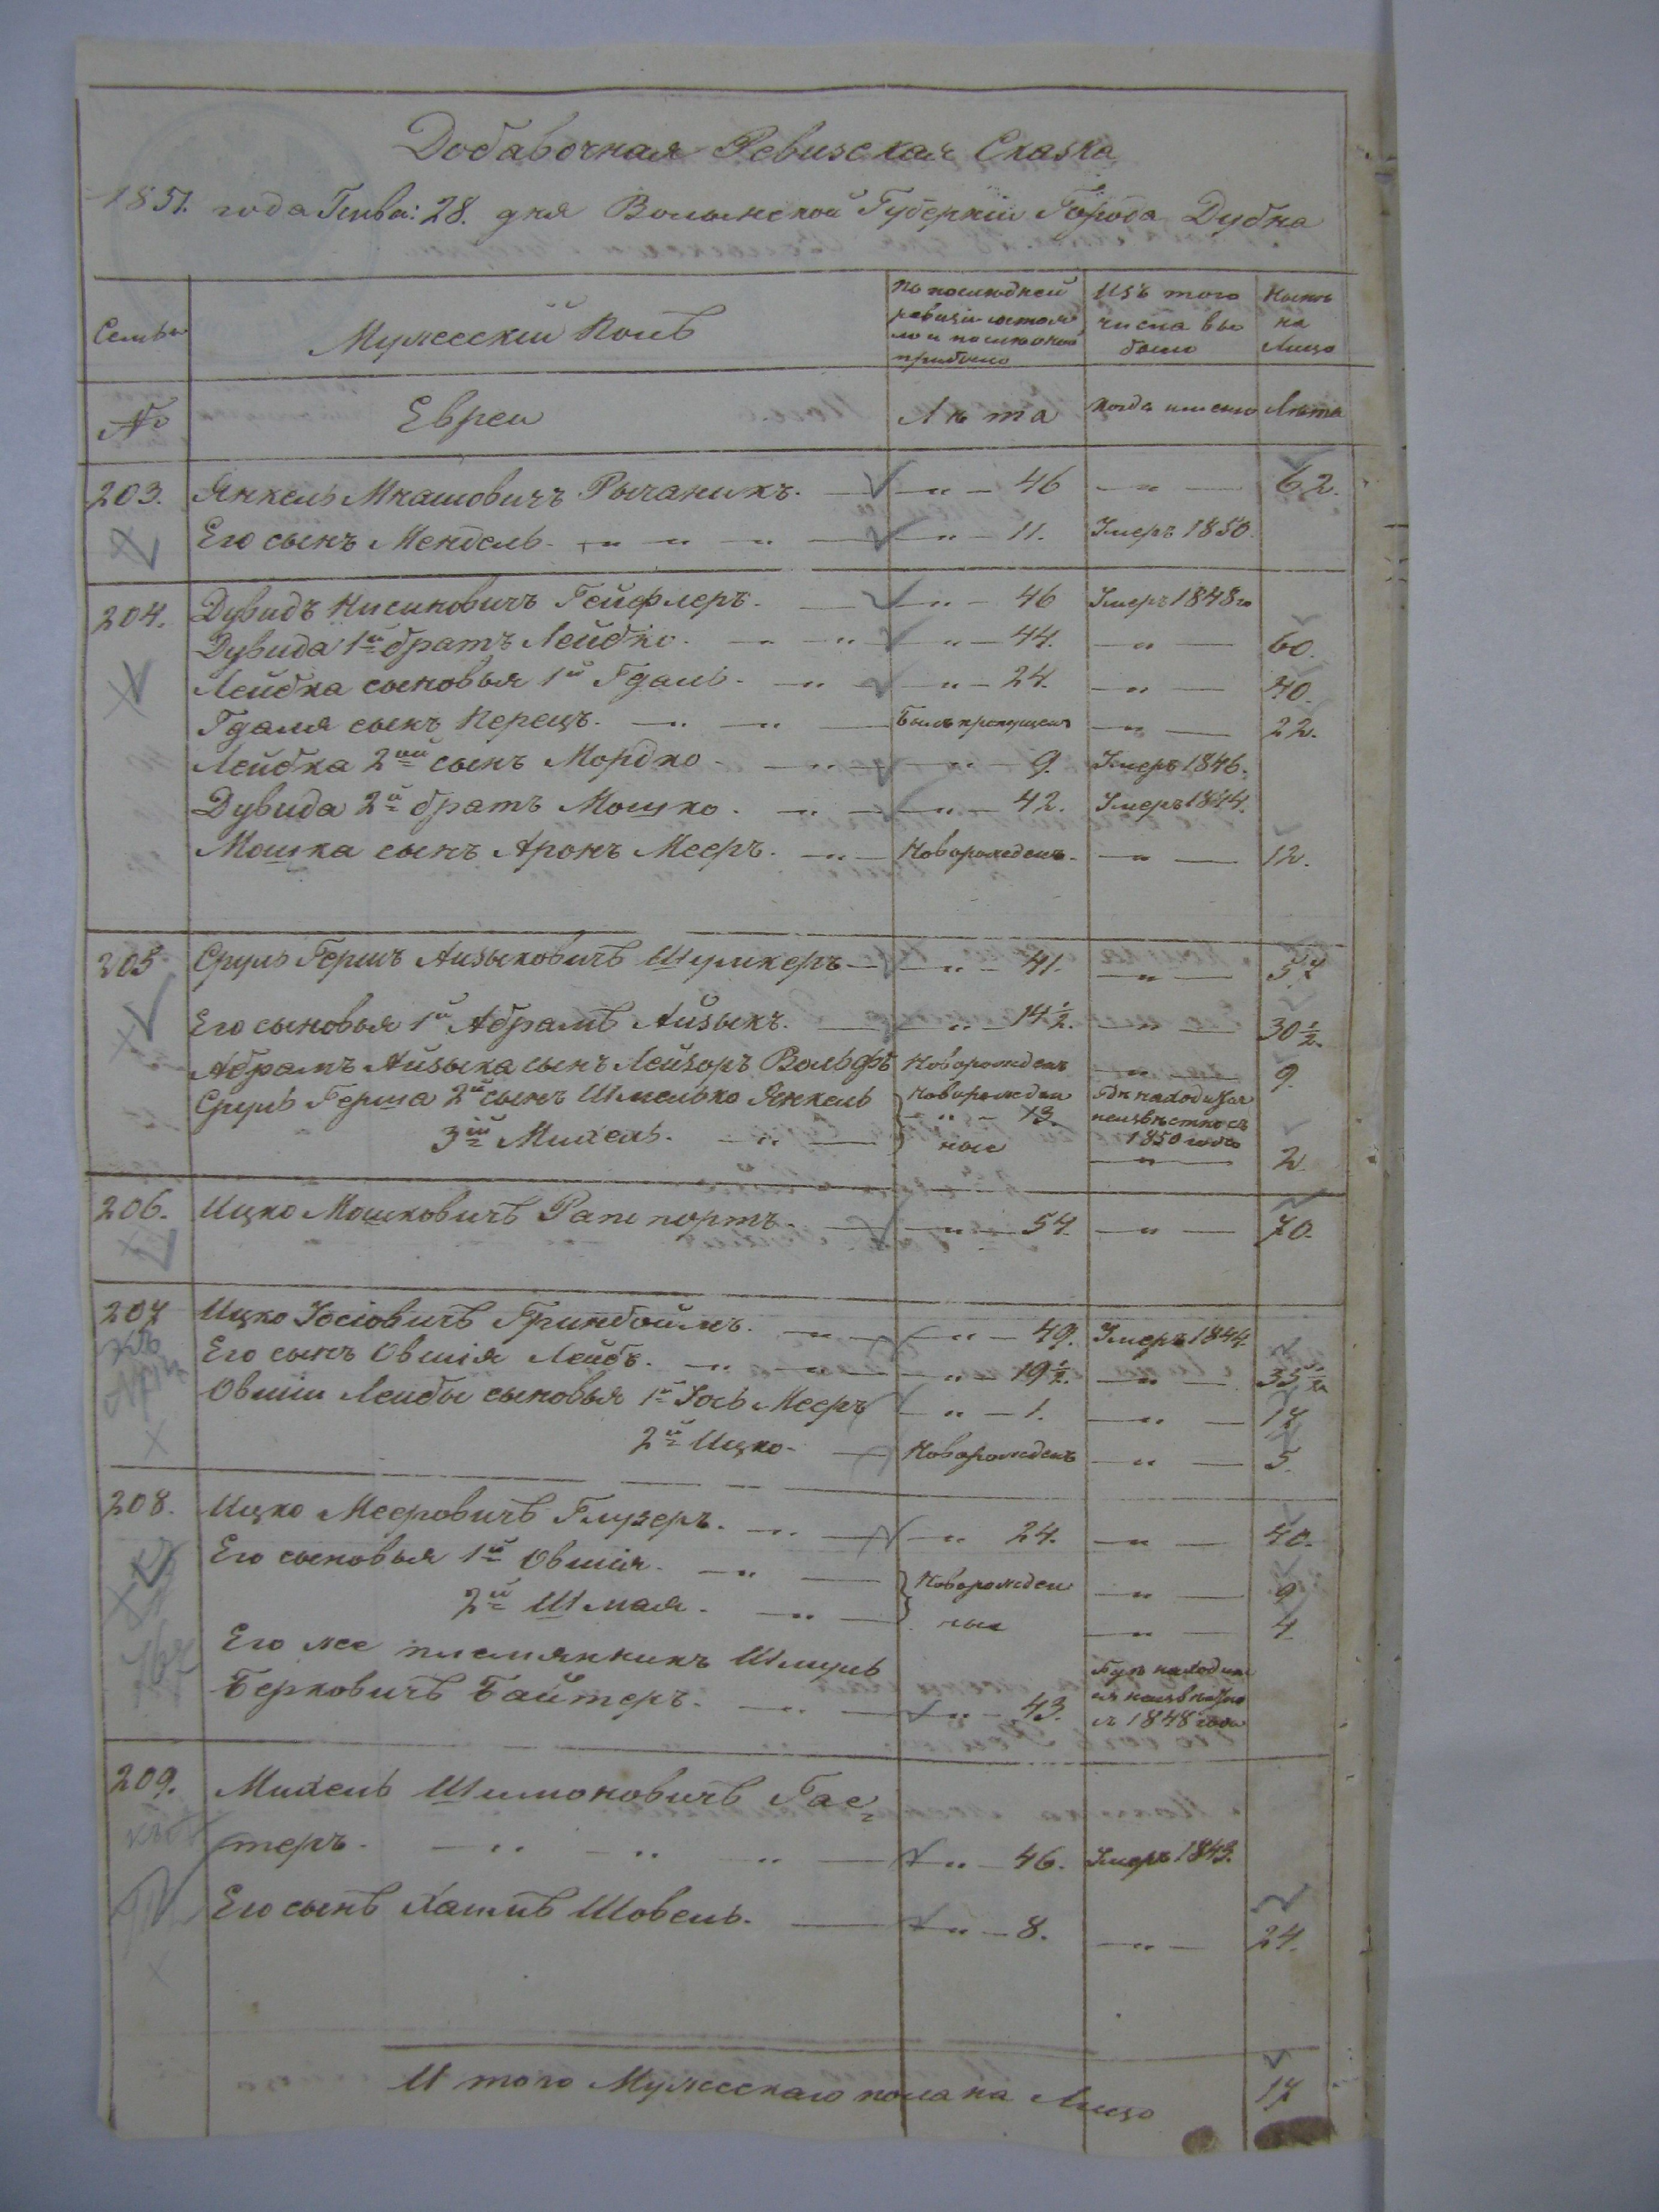 Добавочная Ревизская Сказка
1851. года Генва: 28. дня Волынской Губернии Города Дубна
Семьи
Мужеский Полъ
По последней ревизіи состояло и после оной прибыло
Изъ того числа выбыло
Ныне на Лицо
№
Евреи
Лѣта
Когда именно
Лѣта
203. Янкель Мнашовичъ Рычаникъ. — „ — 46 — „ — 62.
Его сынъ Мендель. „ „ „ — „ — 11. Умеръ 1850.
204. Дувидъ Нисиновичъ Гейфлеръ. — „ — 46 Умеръ 1848 го
Дувида 1й братъ Лейбко. — „ — 44. — „ — 60.
Лейбка сыновья 1й Гдаль. — „ — „ — 24. — „ — 40.
Гдаля сынъ Перецъ. — „ — „ — Былъ пропущенъ — „ — 22.
Лейбка 2ой сынъ Мордко — „ — „ — 9. Умеръ 1846.
Дувида 2й братъ Мошко. — „ — „ — 42. Умеръ 1844.
Мошка сынъ Аронъ Мееръ. — „ — Новорожденъ. — „ — 12.
205 Сруль Гершъ Аизыковичъ Шумкеръ — „ — 41. — „ — 57
Его сыновья 1й Абрамъ Айзыкъ. — „ — 14 ½. — „ — 30 ½.
Абрамъ Айзыка сынъ Лейзоръ Вольфъ Новорожденъ — „ — 9.
Сруль Герша 2й сынъ Шмелько Янкель Новорожден „ 13. Где находится неизвестно съ 1850 года
3й Михель. — „ — ные — „ — 2.
206. Ицко Мошковичъ Рапопортъ. — „ — 54. — „ — 70.
207 Ицко Іосіовичъ Гринбоймъ. — „ — „ — 49. Умеръ 1844.
Его сынъ Овшія Лейбъ. — „ — „ — „ — 19 ½. — „ — 35 ½
Овшіи Лейбы сыновья 1й Іось Мееръ — „ — 1. — „ — 17
2й Ицко. — Новорожденъ — „ — 5.
208. Ицко Мееровичъ Глузеръ. — „ — „ 24. — „ — 40.
Его сыновья 1й Овшія. — „ — Новорожден — „ — 9
2й Шмая. — „ — ные — „ — 4
Его же племянникъ Шмуль
Берковичъ Байтеръ. — „ — „ — 43. с 1848 года
209. Михель Шимоновичъ Гас-
теръ. — „ — „ — „ — 46. Умеръ 1843.
Его сынъ Хаимъ Шовель. — „ — 8. — „ — 24.
И того Мужескаго пола на Лицо 17